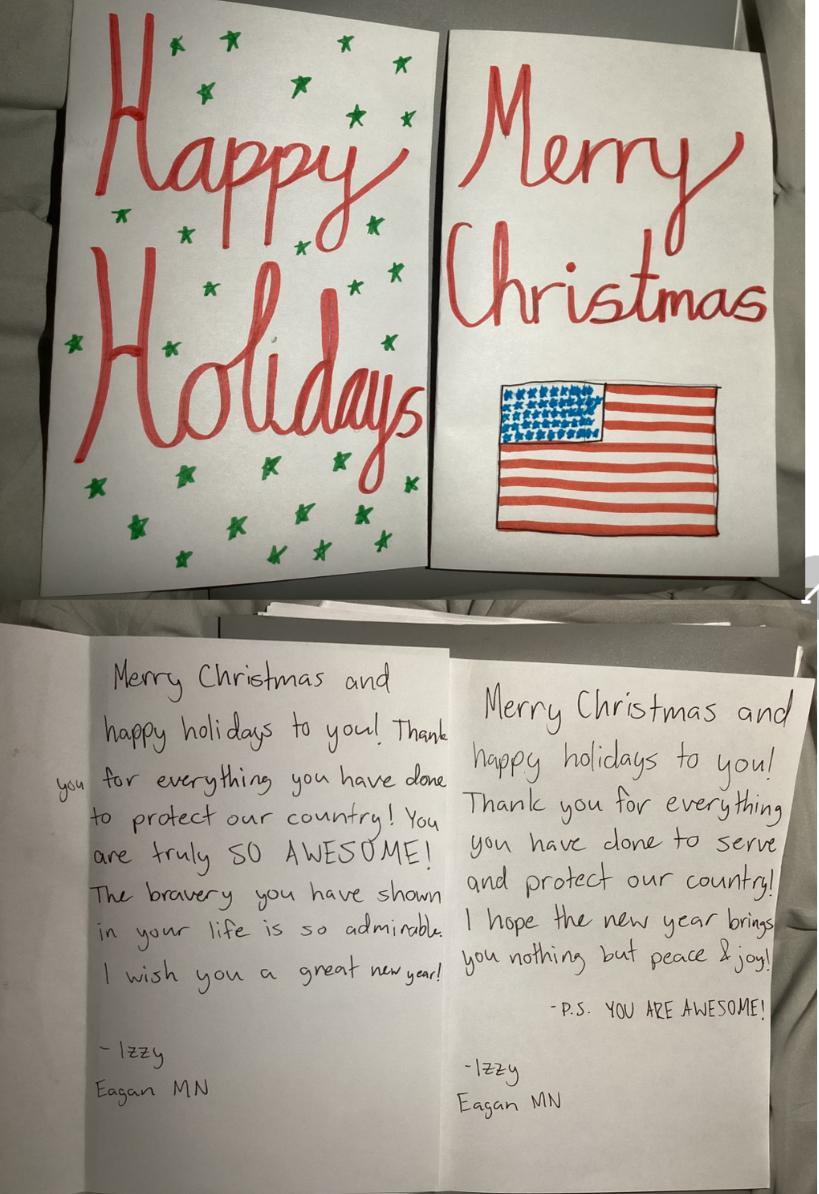 Happy
Holidays
Merry
Christmas
Merry Christmas and
happy holidays to you! Thank
you for everything you have done
to protect our country! You
are truly SO AWESOME!
The bravery you have shown
in your life is so admirable.
I wish you a great new year!
- Izzy
Eagan MN
Merry Christmas and
happy holidays to you!
Thank you for everything
you have done to serve
and protect our country!
I hope the new year brings
you nothing but peace & joy!
- P.S. YOU ARE AWESOME!
- Izzy
Eagan MN